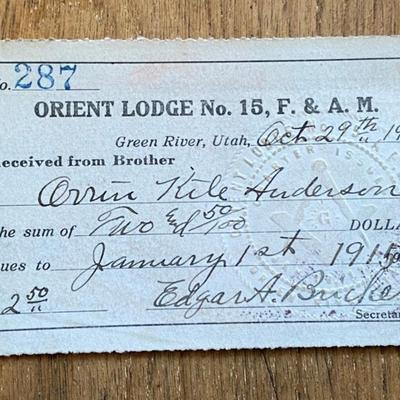 No. 287
ORIENT LODGE No. 15, F. & A. M.
Green River, Utah, Oct 29th 19
Received from Brother
Orrin Kile Anderson
the sum of Two and 50/100 DOLLA
ues to January 1st 191
2 50/" Edgar A.
Secreta